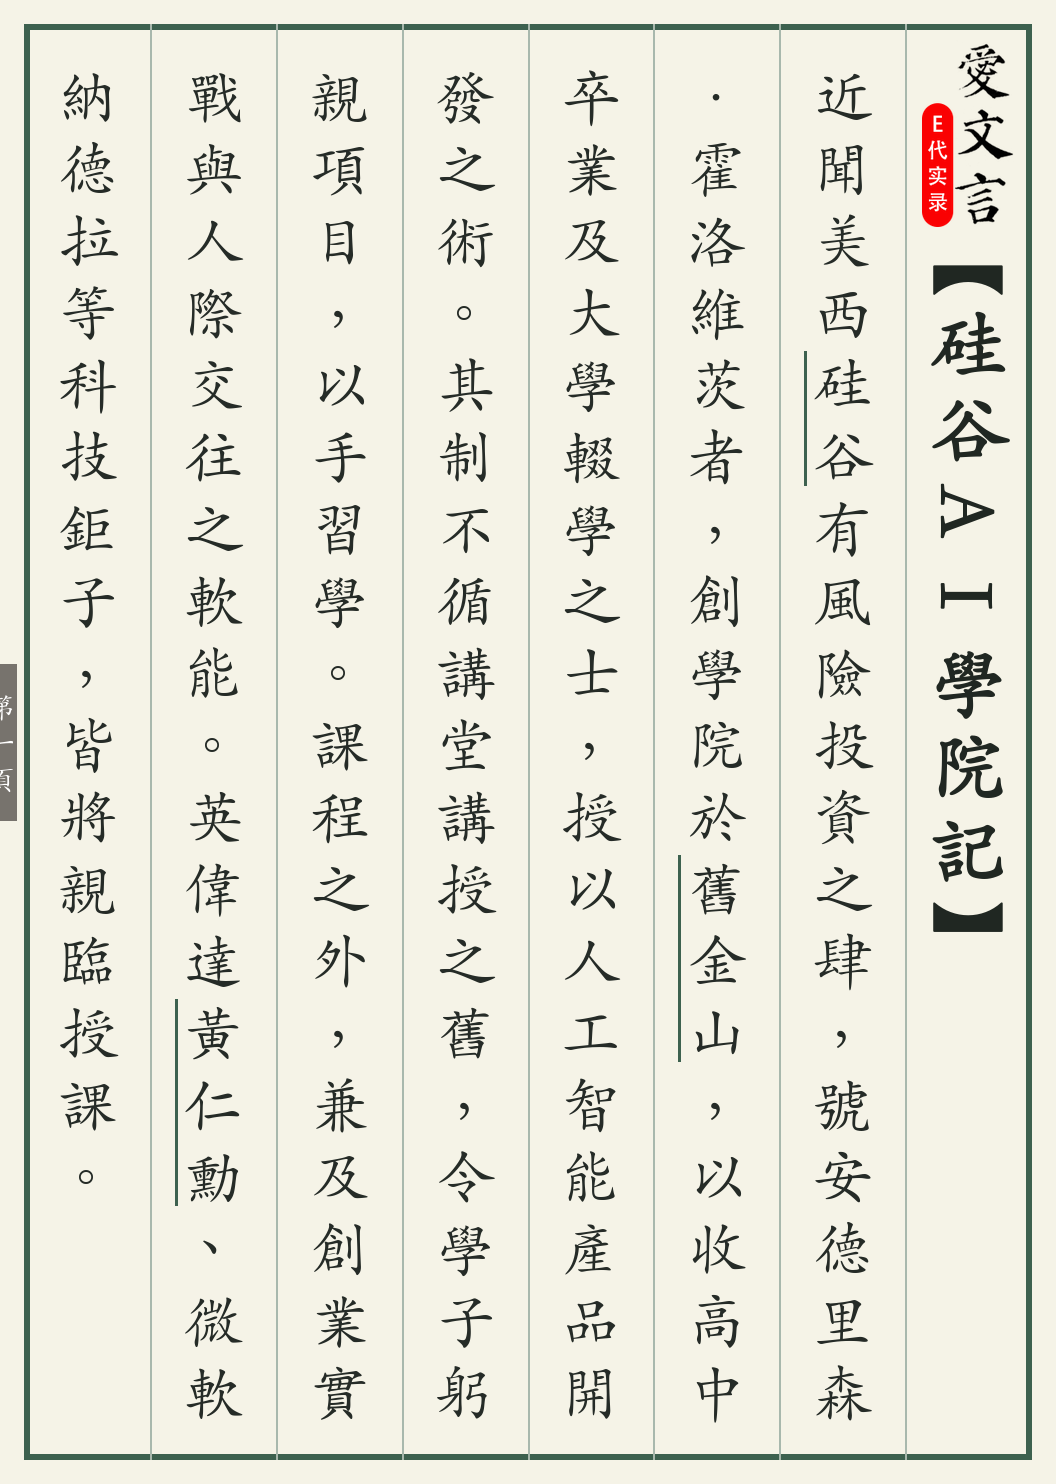 愛文言
E代实录
【硅谷AI學院記】
近聞美西硅谷有風險投資之肆，號安德里森
·霍洛維茨者，創學院於舊金山，以收高中
卒業及大學輟學之士，授以人工智能產品開
發之術。其制不循講堂講授之舊，令學子躬
親項目，以手習學。課程之外，兼及創業實
戰與人際交往之軟能。英偉達黃仁勳、微軟
納德拉等科技鉅子，皆將親臨授課。
第一頁